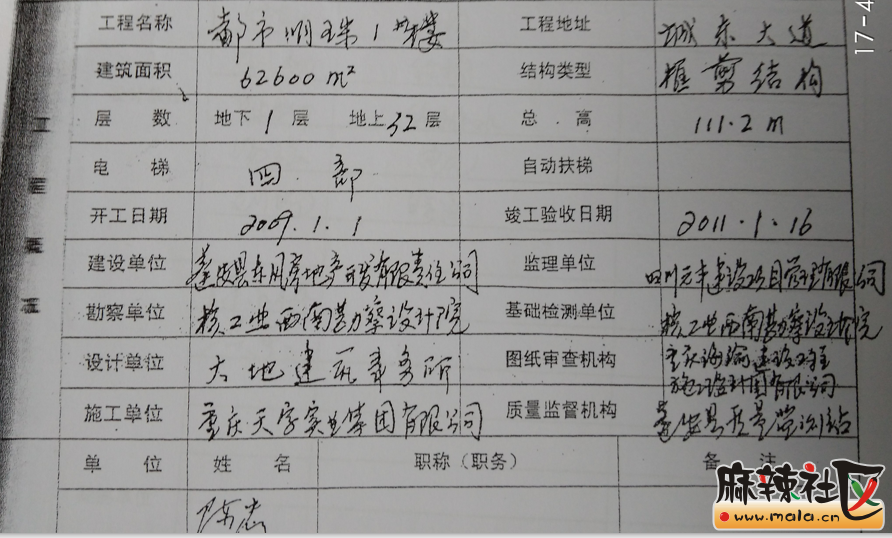 17-4
工程名称 都市明珠1#楼 工程地址 城东大道
建筑面积 62600m² 结构类型 框剪结构
层数 地下1层 地上32层 总高 111.2m
电梯 四部 自动扶梯
开工日期 2009.1.1 竣工验收日期 2011.1.16
建设单位 蓬安县东风房地产开发有限责任公司 监理单位 四川元丰建设项目管理有限公司
勘察单位 核工业西南勘察设计院 基础检测单位 核工业西南勘察设计院
设计单位 大地建筑事务所 图纸审查机构 重庆渝建设工程
施工图设计有限公司
施工单位 重庆天字实业集团有限公司 质量监督机构 蓬安县质量监测站
工程概况
单位 姓名 职称（职务） 备注
陈志
麻辣社区
www.mala.cn